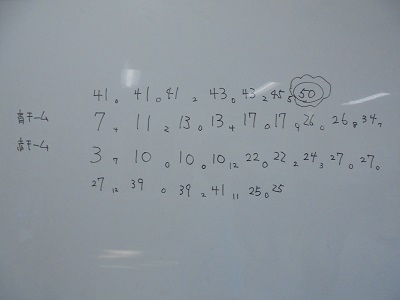 41 0 41 0 41 2 43 0 43 2 45 5 50
青チーム 7 4 11 2 13 0 13 4 17 0 17 9 26 0 26 8 34 7
赤チーム 3 7 10 0 10 0 10 12 22 0 22 2 24 3 27 0 27 0
27 12 39 0 39 2 41 11 25 0 25